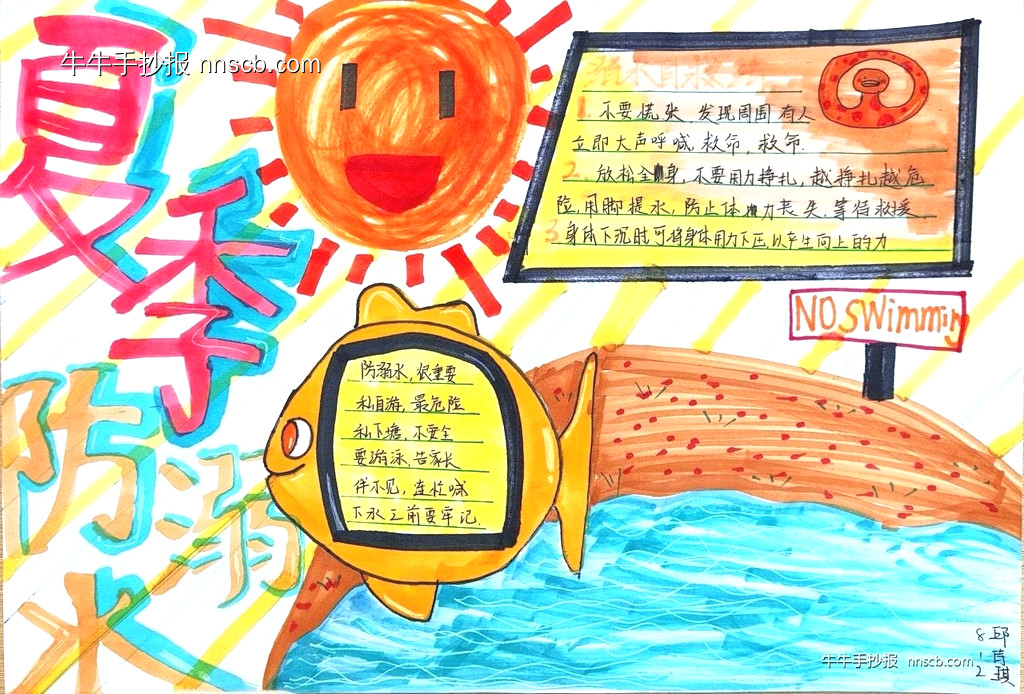 牛牛手抄报 nnscb.com
夏季
防溺水
溺水自救方法
1. 不要慌张, 发现周围有人
立即大声呼喊, 救命, 救命.
2. 放松全身, 不要用力挣扎, 越挣扎越危
险, 用脚提水, 防止体力丧失, 等待救援
3 身体下沉时可将身体用力下压以产生向上的力
NO swimming
防溺水, 很重要
私自游, 最危险
私下塘, 不要全
要游泳, 告家长
伴不见, 连忙喊
下水之前要牢记.
牛牛手抄报 nnscb.com
812
邱
琪